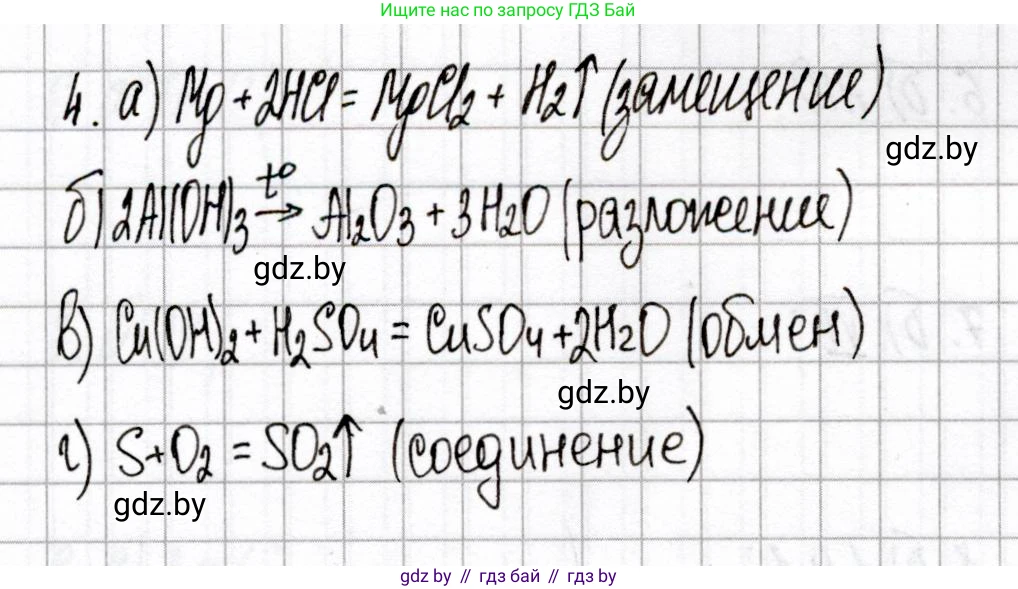 Ищите нас по запросу ГДЗ Бай
4. а) Mg + 2HCl = MgCl₂ + H₂↑ (замещение)
gdz.by
б) 2Al(OH)₃ t°→ Al₂O₃ + 3H₂O (разложение)
gdz.by
в) Cu(OH)₂ + H₂SO₄ = CuSO₄ + 2H₂O (обмен)
gdz.by
г) S + O₂ = SO₂↑ (соединение)
gdz.by
gdz by // гдз бай // гдз by